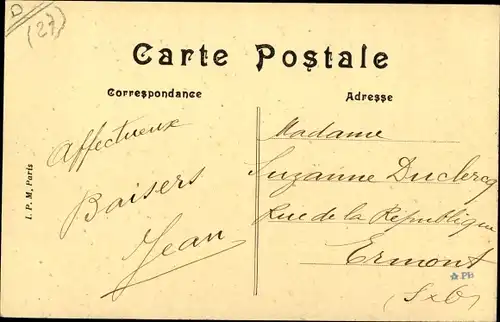 D
(27)
Carte Postale
Correspondance
Adresse
Affectueux
Baisers
Jean
Madame
Suzanne Duclercq
Rue de la Republique
Ermont
(S×O)
I. P. M. Paris